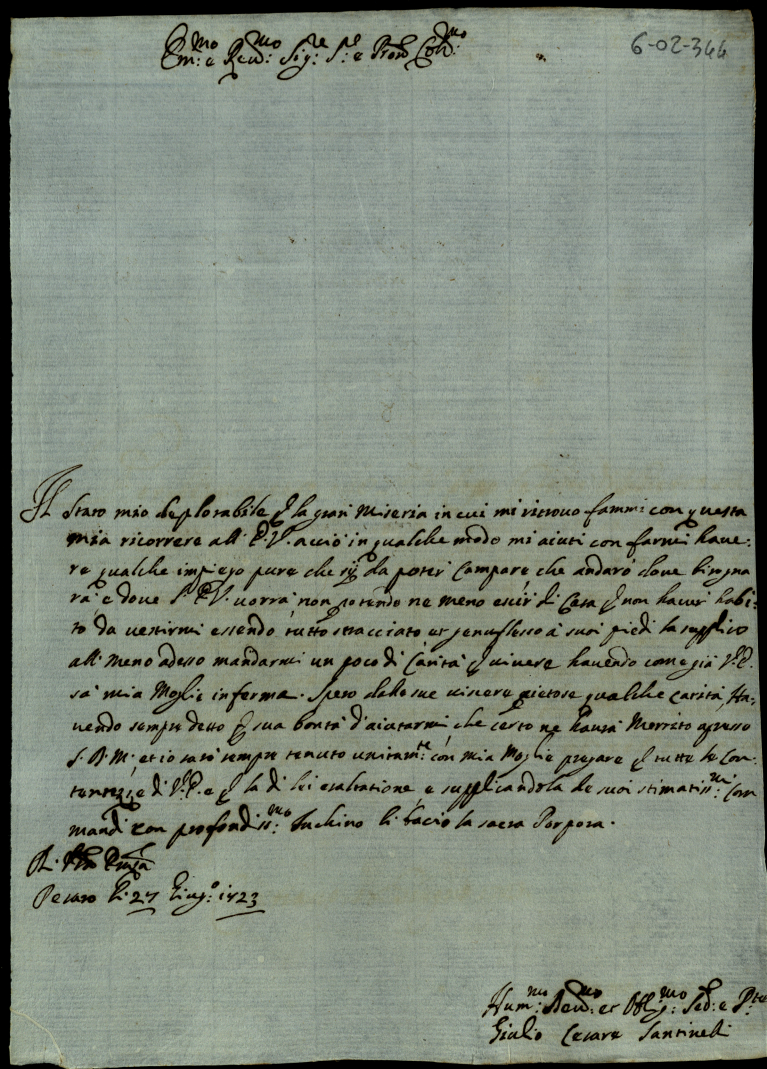 Em:mo e Rev:mo Sig:re S:e e Pron Col:mo
6-02-344
Il Stato mio deplorabile p la gran Miseria in cui mi ritrovo fammi con questa
mia ricorrere all' E.V. acciò in qualche modo mi aiuti con farmi have:
re qualche impiego pure che sij da poter Campare che andarò dove bisogna
rà e dove l' E.V. vorrà non potendo ne meno escir di Casa p non haver habi:
to da vestirmi essendo tutto stracciato et genuflesso à suoi piedi la supplico
all meno adesso mandarmi un poco di Carità p vivere havendo come già V.E.
sà mia Moglie inferma. Spero dalle sue viscere pietose qualche carità, Ha:
vendo sempre detto p sua bontà d'aiutarmi che certo ne haurà Merrito apresso
S.D.M. et io sarò sempre tenuto unitam:te con mia Moglie pregare p tutte le Con:
tentezze di V.E. e p la di lei esaltatione e supplicandola de suoi stimatiss:mi Com
mandi con profondiss:mo Inchino li bacio la sacra Porpora.
Pesaro li 27 Giug:o 1723
Hum:mo Dev:mo et Obl:mo Ser: e
Giulio Cesare Santinelli